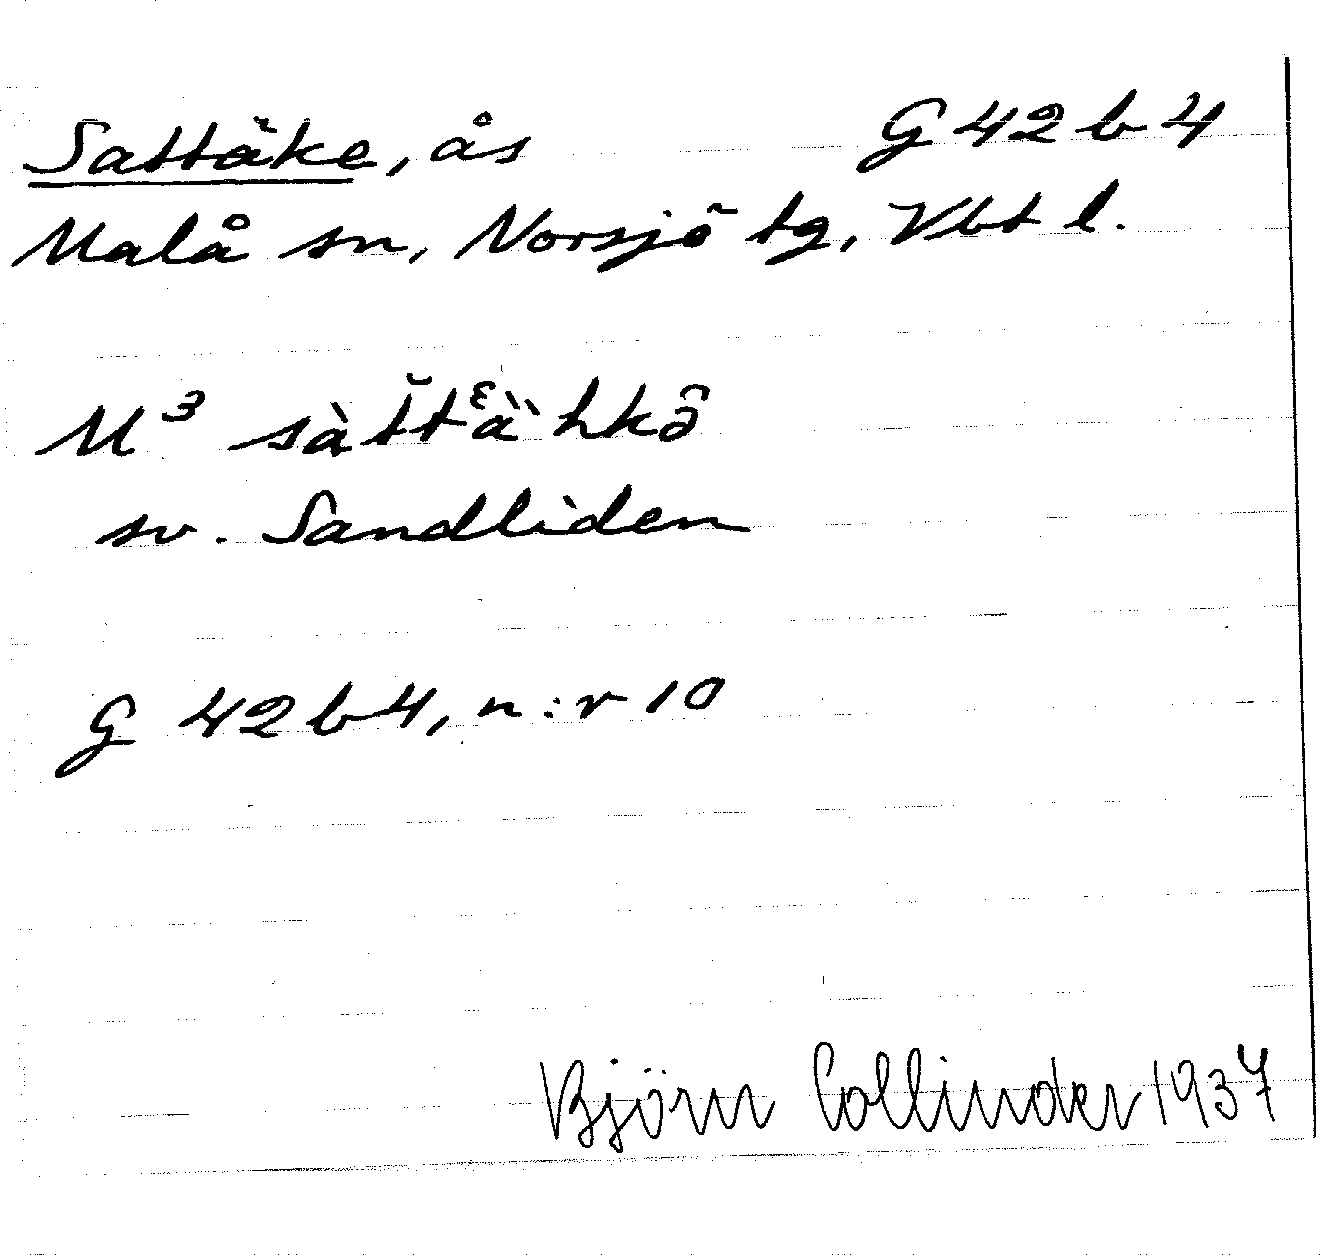 Sattäke, ås G 42 b 4
Malå sn, Norsjö tg, Vbt l.
M³ sàt̆tᵋä̀hkə̂
sv. Sandliden
G 42 b 4, n:r 10
Björn Collinder 1937